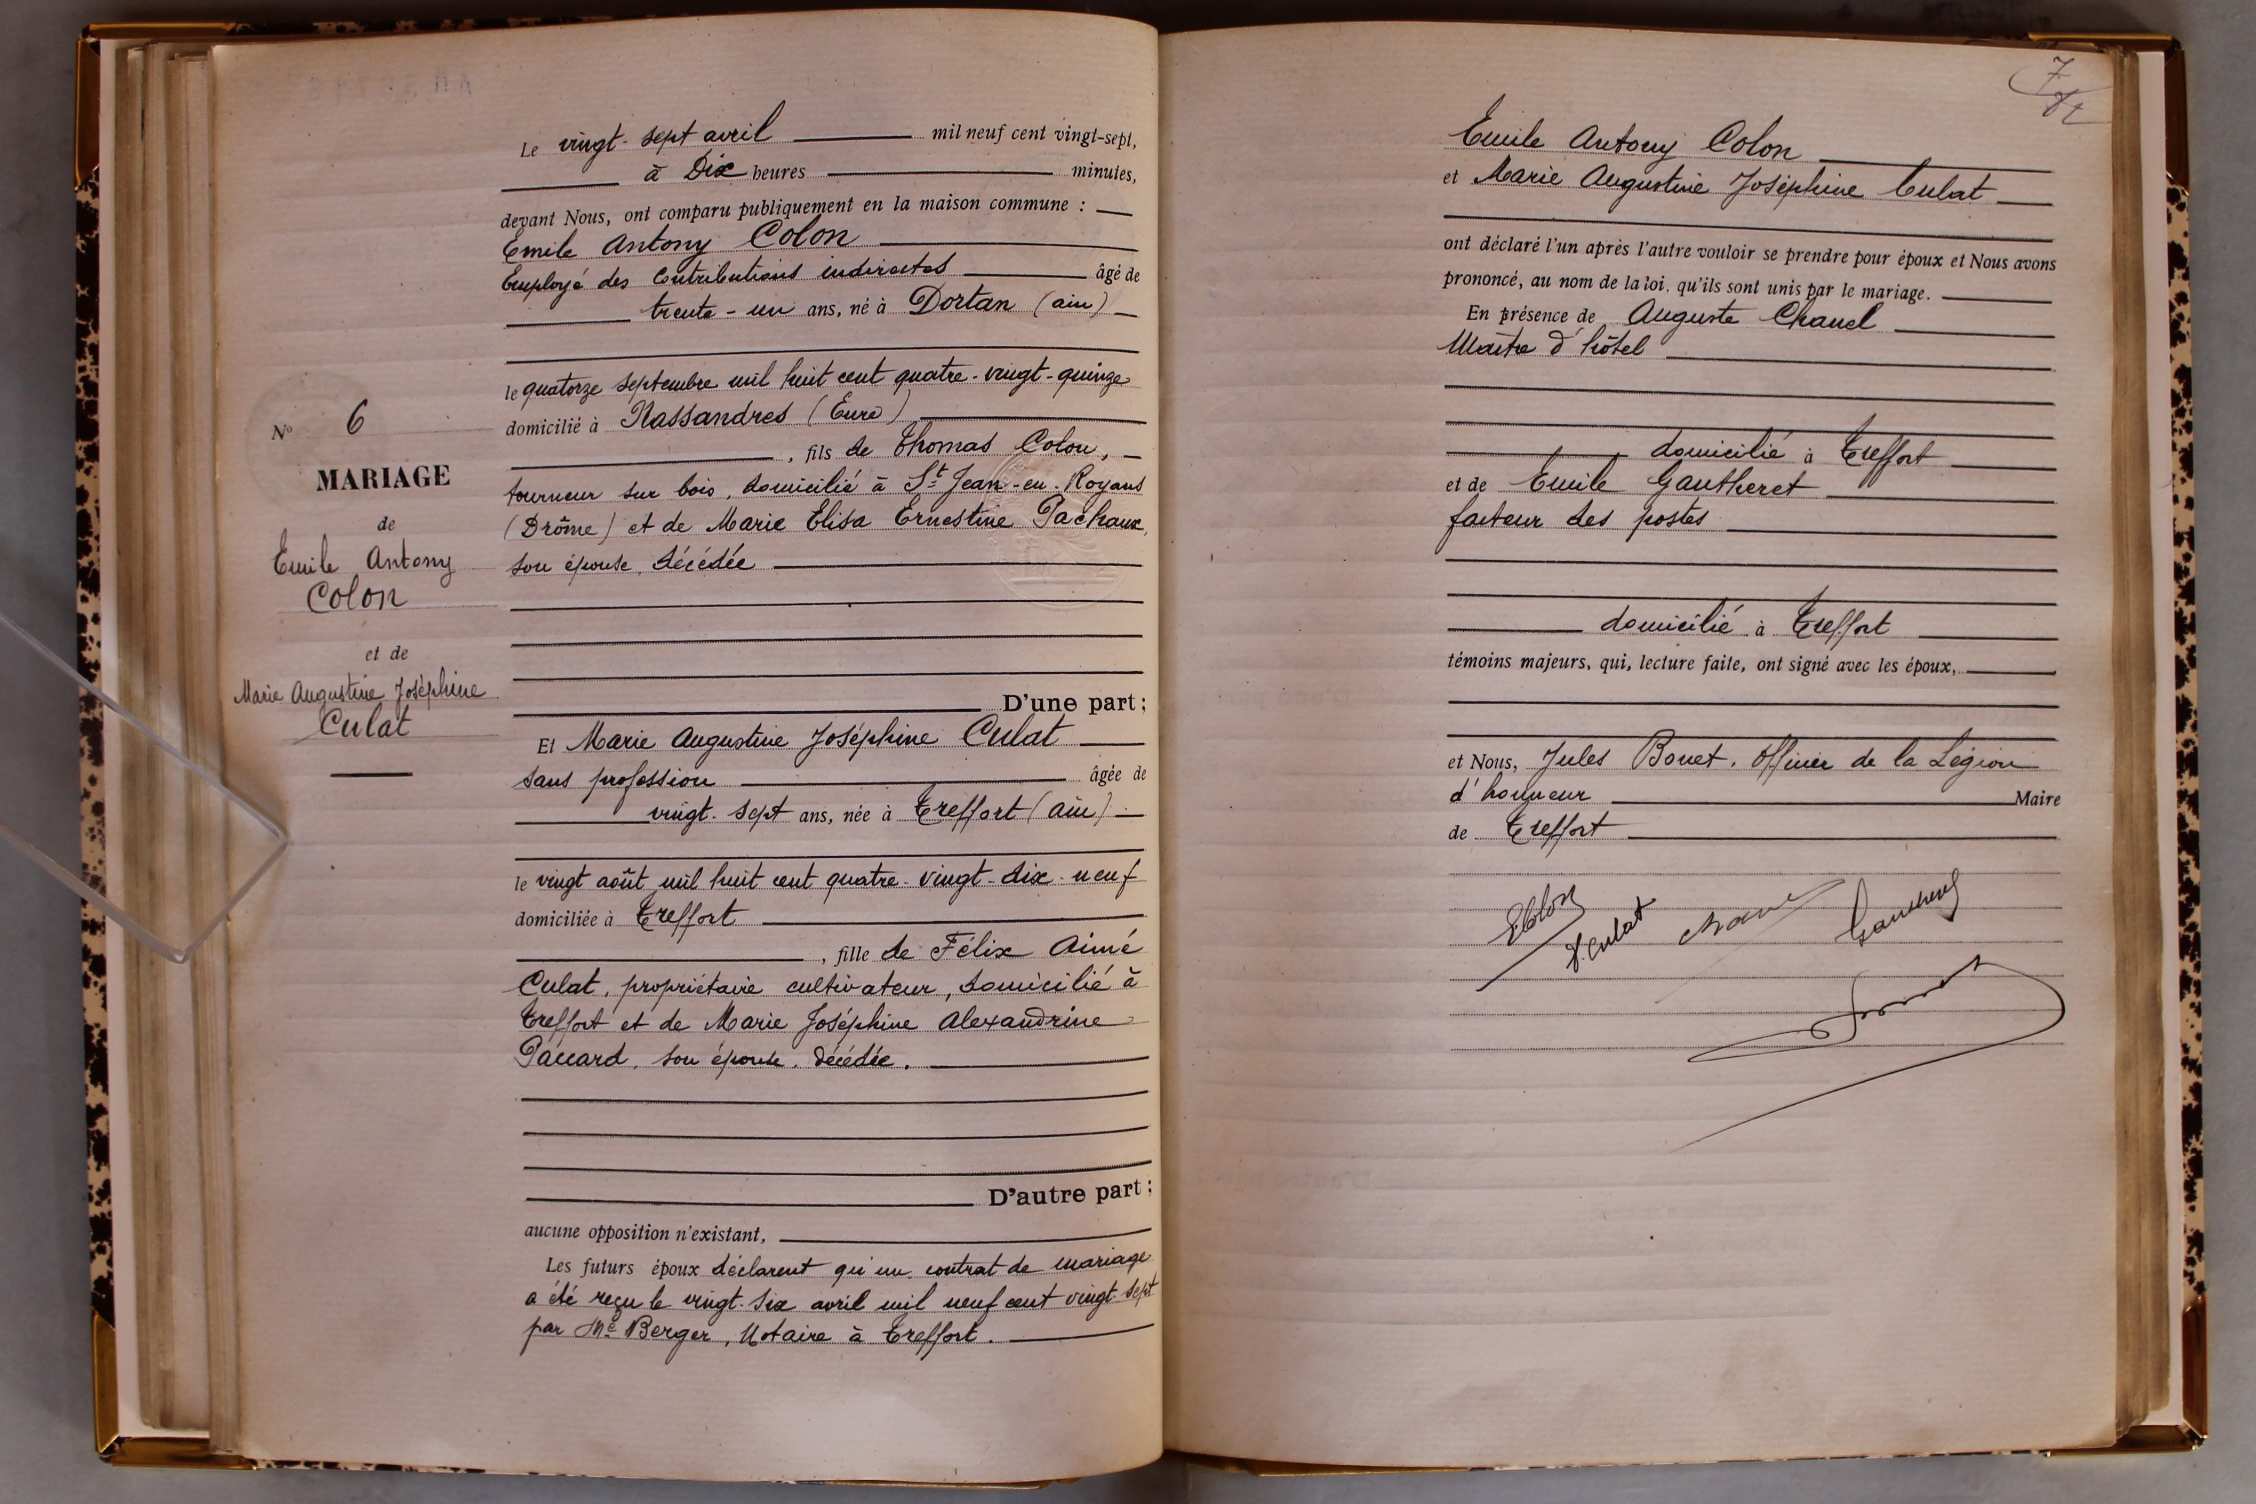 Le vingt-sept avril mil neuf cent vingt-sept,
à Dix heures minutes,
devant Nous, ont comparu publiquement en la maison commune :
Emile Antony Colon
Employé des Contributions indirectes âgé de
trente-un ans, né à Dortan (ain)
le quatorze septembre mil huit cent quatre-vingt-quinze
domicilié à Nassandres (Eure)
, fils de Thomas Colon,
tourneur sur bois, domicilié à St Jean-en-Royans
(Drôme) et de Marie Elisa Ernestine Pachaux,
son épouse, décédée
D'une part ;
Et Marie Augustine Joséphine Culat
sans profession âgée de
vingt-sept ans, née à Treffort (ain)
le vingt août mil huit cent quatre-vingt-dix-neuf
domiciliée à Treffort
, fille de Félix Aimé
Culat, propriétaire cultivateur, domicilié à
Treffort et de Marie Joséphine Alexandrine
Paccard, son épouse, décédée.
D'autre part ;
aucune opposition n'existant,
Les futurs époux déclarent qu'un contrat de mariage
a été reçu le vingt-six avril mil neuf cent vingt-sept
par Me Berger, Notaire à Treffort.
No 6
MARIAGE
de
Emile Antony
Colon
et de
Marie Augustine Joséphine
Culat
7
Emile Antony Colon
et Marie Augustine Joséphine Culat
ont déclaré l'un après l'autre vouloir se prendre pour époux et Nous avons
prononcé, au nom de la loi, qu'ils sont unis par le mariage.
En présence de Auguste Chanel
Maître d'hôtel
domicilié à Treffort
et de Emile Gautheret
facteur des postes
domicilié à Treffort
témoins majeurs, qui, lecture faite, ont signé avec les époux,
et Nous, Jules Bonet, Officier de la Légion
d'honneur Maire
de Treffort
EColon
J. Culat
Chanel
Gautheret